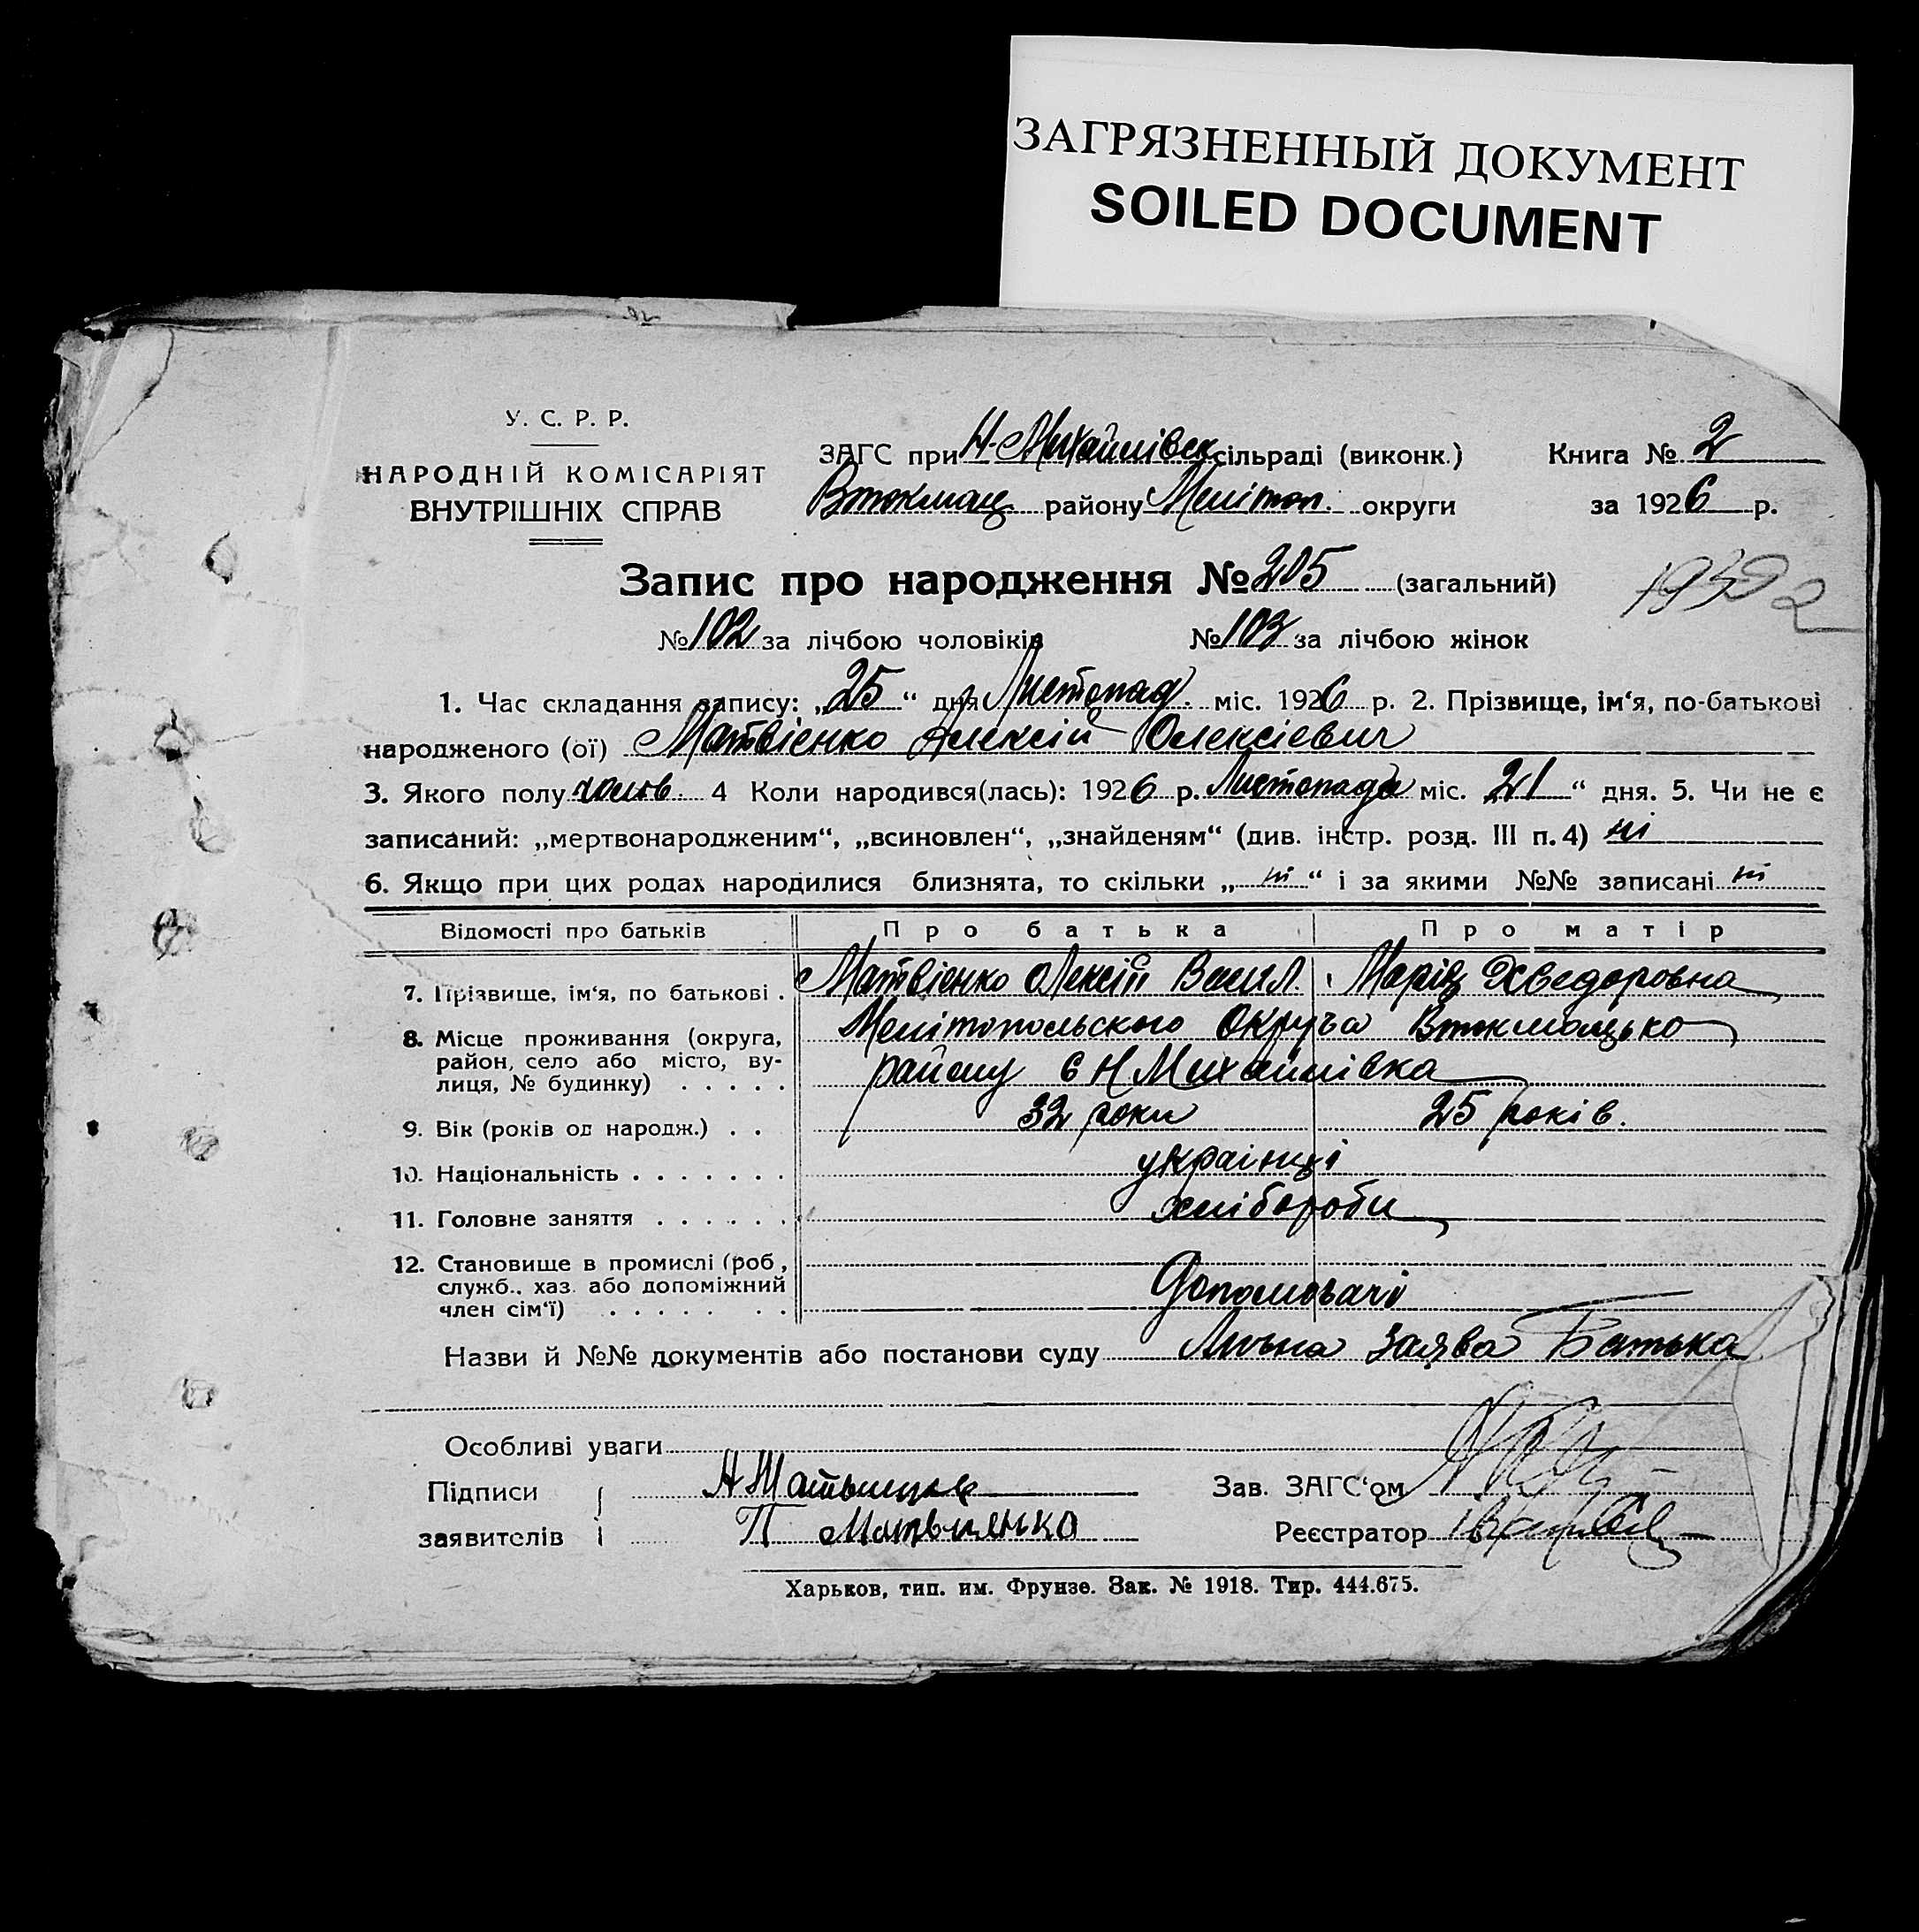 ЗАГРЯЗНЕННЫЙ ДОКУМЕНТ
SOILED DOCUMENT
У. С. Р. Р.
НАРОДНІЙ КОМІСАРІЯТ
ВНУТРІШНІХ СПРАВ
ЗАГС при Н-Михайлівск сільраді (виконк.)
Втокмац району Мелітоп. округи
Книга № 2
за 1926 р.
Запис про народження № 205 (загальний)
№ 102 за лічбою чоловіків № 103 за лічбою жінок
1. Час складання запису: „25“ дня Листопад. міс. 1926 р. 2. Прізвище, ім‘я, по-батькові
народженого (ої) Матвієнко Алексій Олексієвич
3. Якого полу чолов. 4 Коли народився(лась): 1926 р. Листопада міс. 21“ дня. 5. Чи не є
записаний: „мертвонародженим“, „всиновлен“, „знайденям“ (див. інстр. розд. III п. 4) ні
6. Якщо при цих родах народилися близнята, то скільки „ні“ і за якими №№ записані ні
Відомості про батьків Про батька Про матір
7. Прізвище, ім‘я, по батькові . Матвієнко Олексій Васил. Марія Хведоровна
8. Місце проживання (округа, район, село або місто, вулиця, № будинку) . . . . . Мелітопольского Округа Втокмацько
району с Н Михайлівка
9. Вік (років од народж.) . . 32 роки 25 років.
10. Національність . . . . . . . українці
11. Головне заняття . . . . . . хлібороби
12. Становище в промислі (роб, служб., хаз. або допоміжний член сім‘ї) . . . . . . . Допомовачі
Назви й №№ документів або постанови суду Лична заява Батька
Особливі уваги
Підписи
заявителів
П Матвиенько
Зав. ЗАГС‘ом
Реєстратор
Харьков, тип. им. Фрунзе. Зак. № 1918. Тир. 444.675.